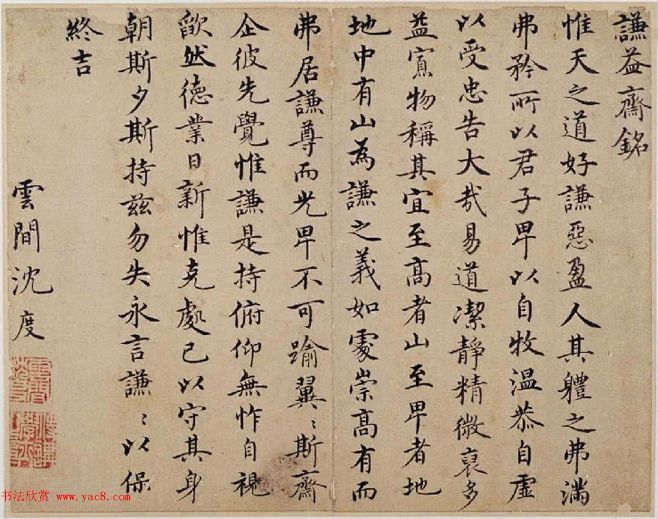 謙益齋銘
惟天之道好謙惡盈人其軆之弗滿
弗矜所以君子卑以自牧温恭自虛
以受忠告大哉易道潔靜精微裒多
益寡物稱其宜至高者山至卑者地
地中有山為謙之義如處崇高有而
弗居謙尊而光卑不可踰翼〻斯齋
企彼先覺惟謙是持俯仰無怍自視
歛然德業日新惟克處己以守其身
朝斯夕斯持茲勿失永言謙〻以保
終吉
雲間沈度
书法欣赏 www.yac8.com